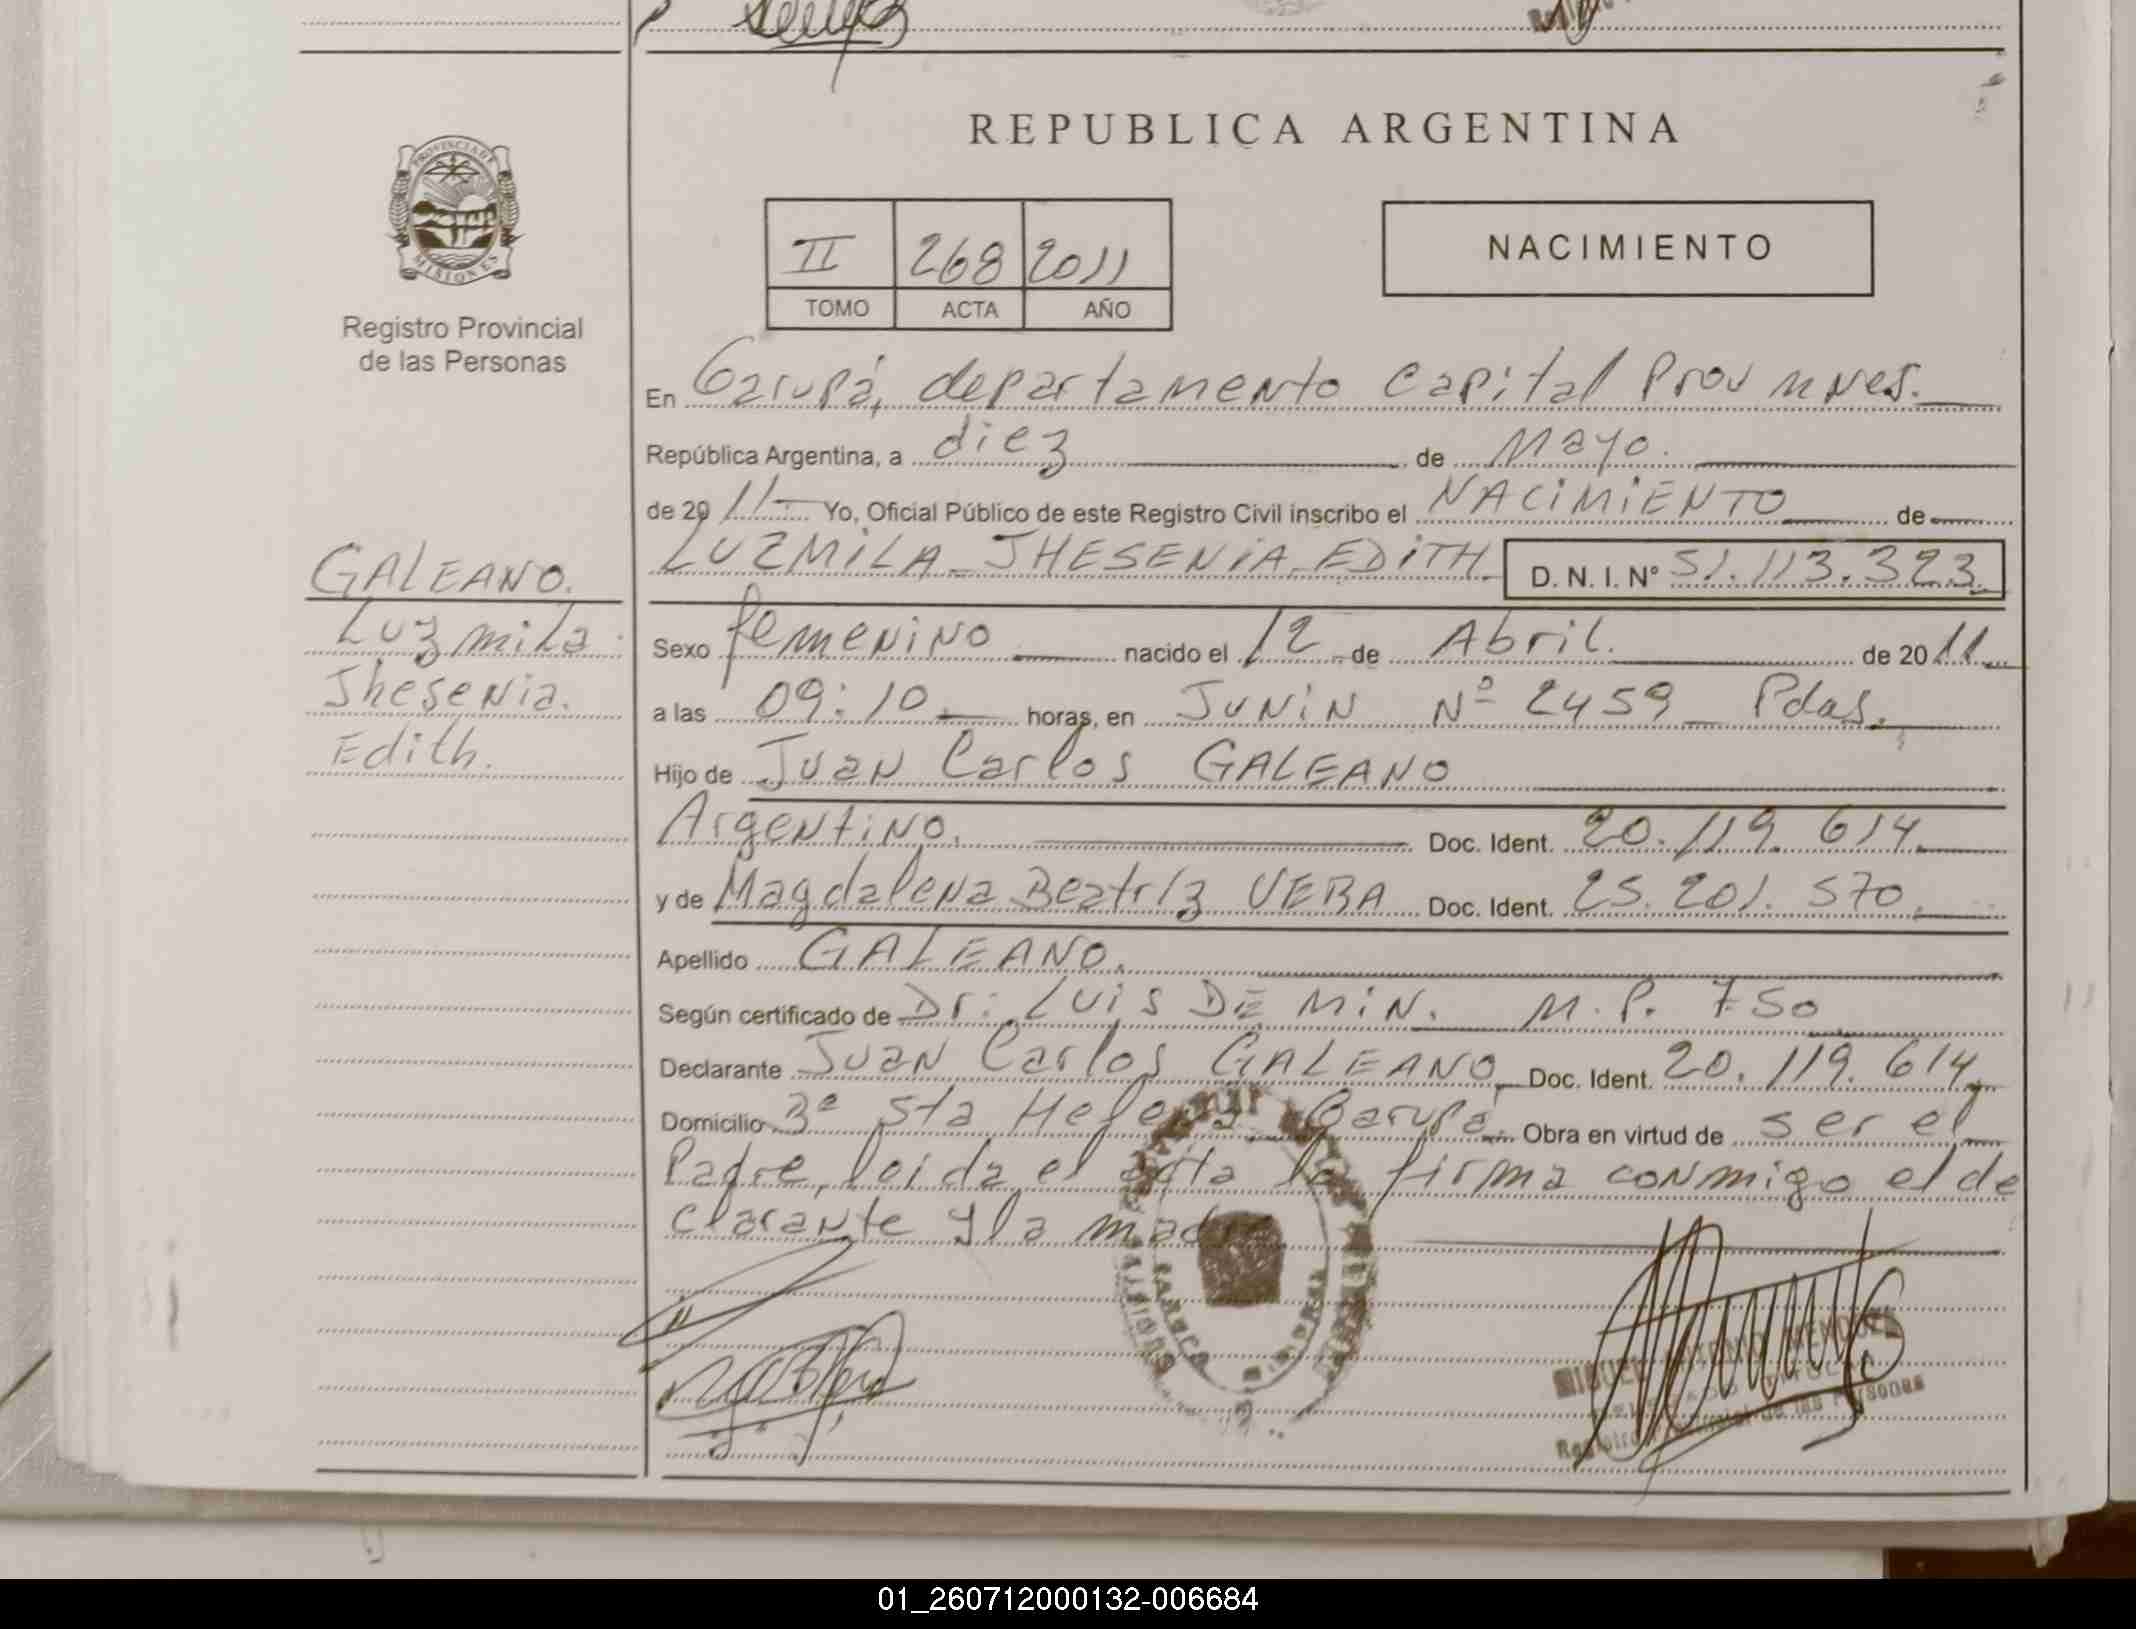 REPUBLICA ARGENTINA
PROVINCIA DE
MISIONES
Registro Provincial
de las Personas
II 268 2011
TOMO ACTA AÑO
NACIMIENTO
En Garupá, departamento Capital Prov Mnes.
República Argentina, a diez de Mayo.
de 2011- Yo, Oficial Público de este Registro Civil inscribo el NACIMIENTO de
LUZMILA JHESENIA EDITH D. N. I. Nº 51.113.323
GALEANO.
Luzmila
Jhesenia.
Edith.
Sexo femenino nacido el 12 de Abril. de 2011
a las 09:10 horas, en JUNIN Nº 2459 Pdas.
Hijo de Juan Carlos GALEANO
Argentino. Doc. Ident. 20.119.614
y de Magdalena Beatriz VERA Doc. Ident. 25.201.570.
Apellido GALEANO.
Según certificado de Dr: LUIS DE MIN. M.P. 750
Declarante Juan Carlos GALEANO Doc. Ident. 20.119.614
Domicilio Bº Sta Helena Garupá Obra en virtud de ser el
Padre, leida el acta la firma conmigo el de
clarante y la madre
MIGUEL ANTONIO MENDEZ
DELEGADO TITULAR
Registro Provincial de las Personas
01_260712000132-006684